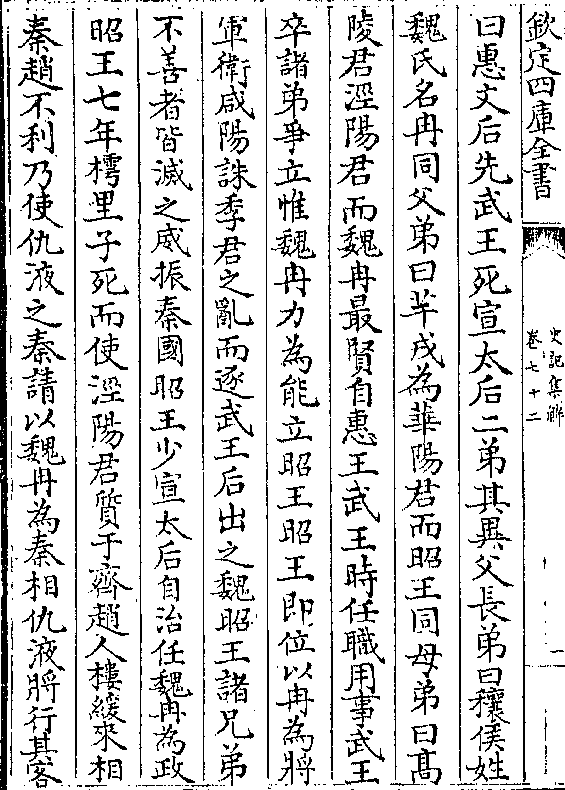 欽定四庫全書
史記集解
卷七十二
一
曰惠文后先武王死宣太后二弟其異父長弟曰穰侯姓
魏氏名冉同父弟曰芊戎為華陽君而昭王同母弟曰髙
陵君涇陽君而魏冉最賢自惠王武王時任職用事武王
卒諸弟爭立惟魏冉力為能立昭王昭王即位以冉為將
軍衛咸陽誅季君之亂而逐武王后出之魏昭王諸兄弟
不善者皆滅之威振秦國昭王少宣太后自治任魏冉為政
昭王七年樗里子死而使涇陽君質于齊趙人樓緩來相
秦趙不利乃使仇液之秦請以魏冉為秦相仇液將行其客